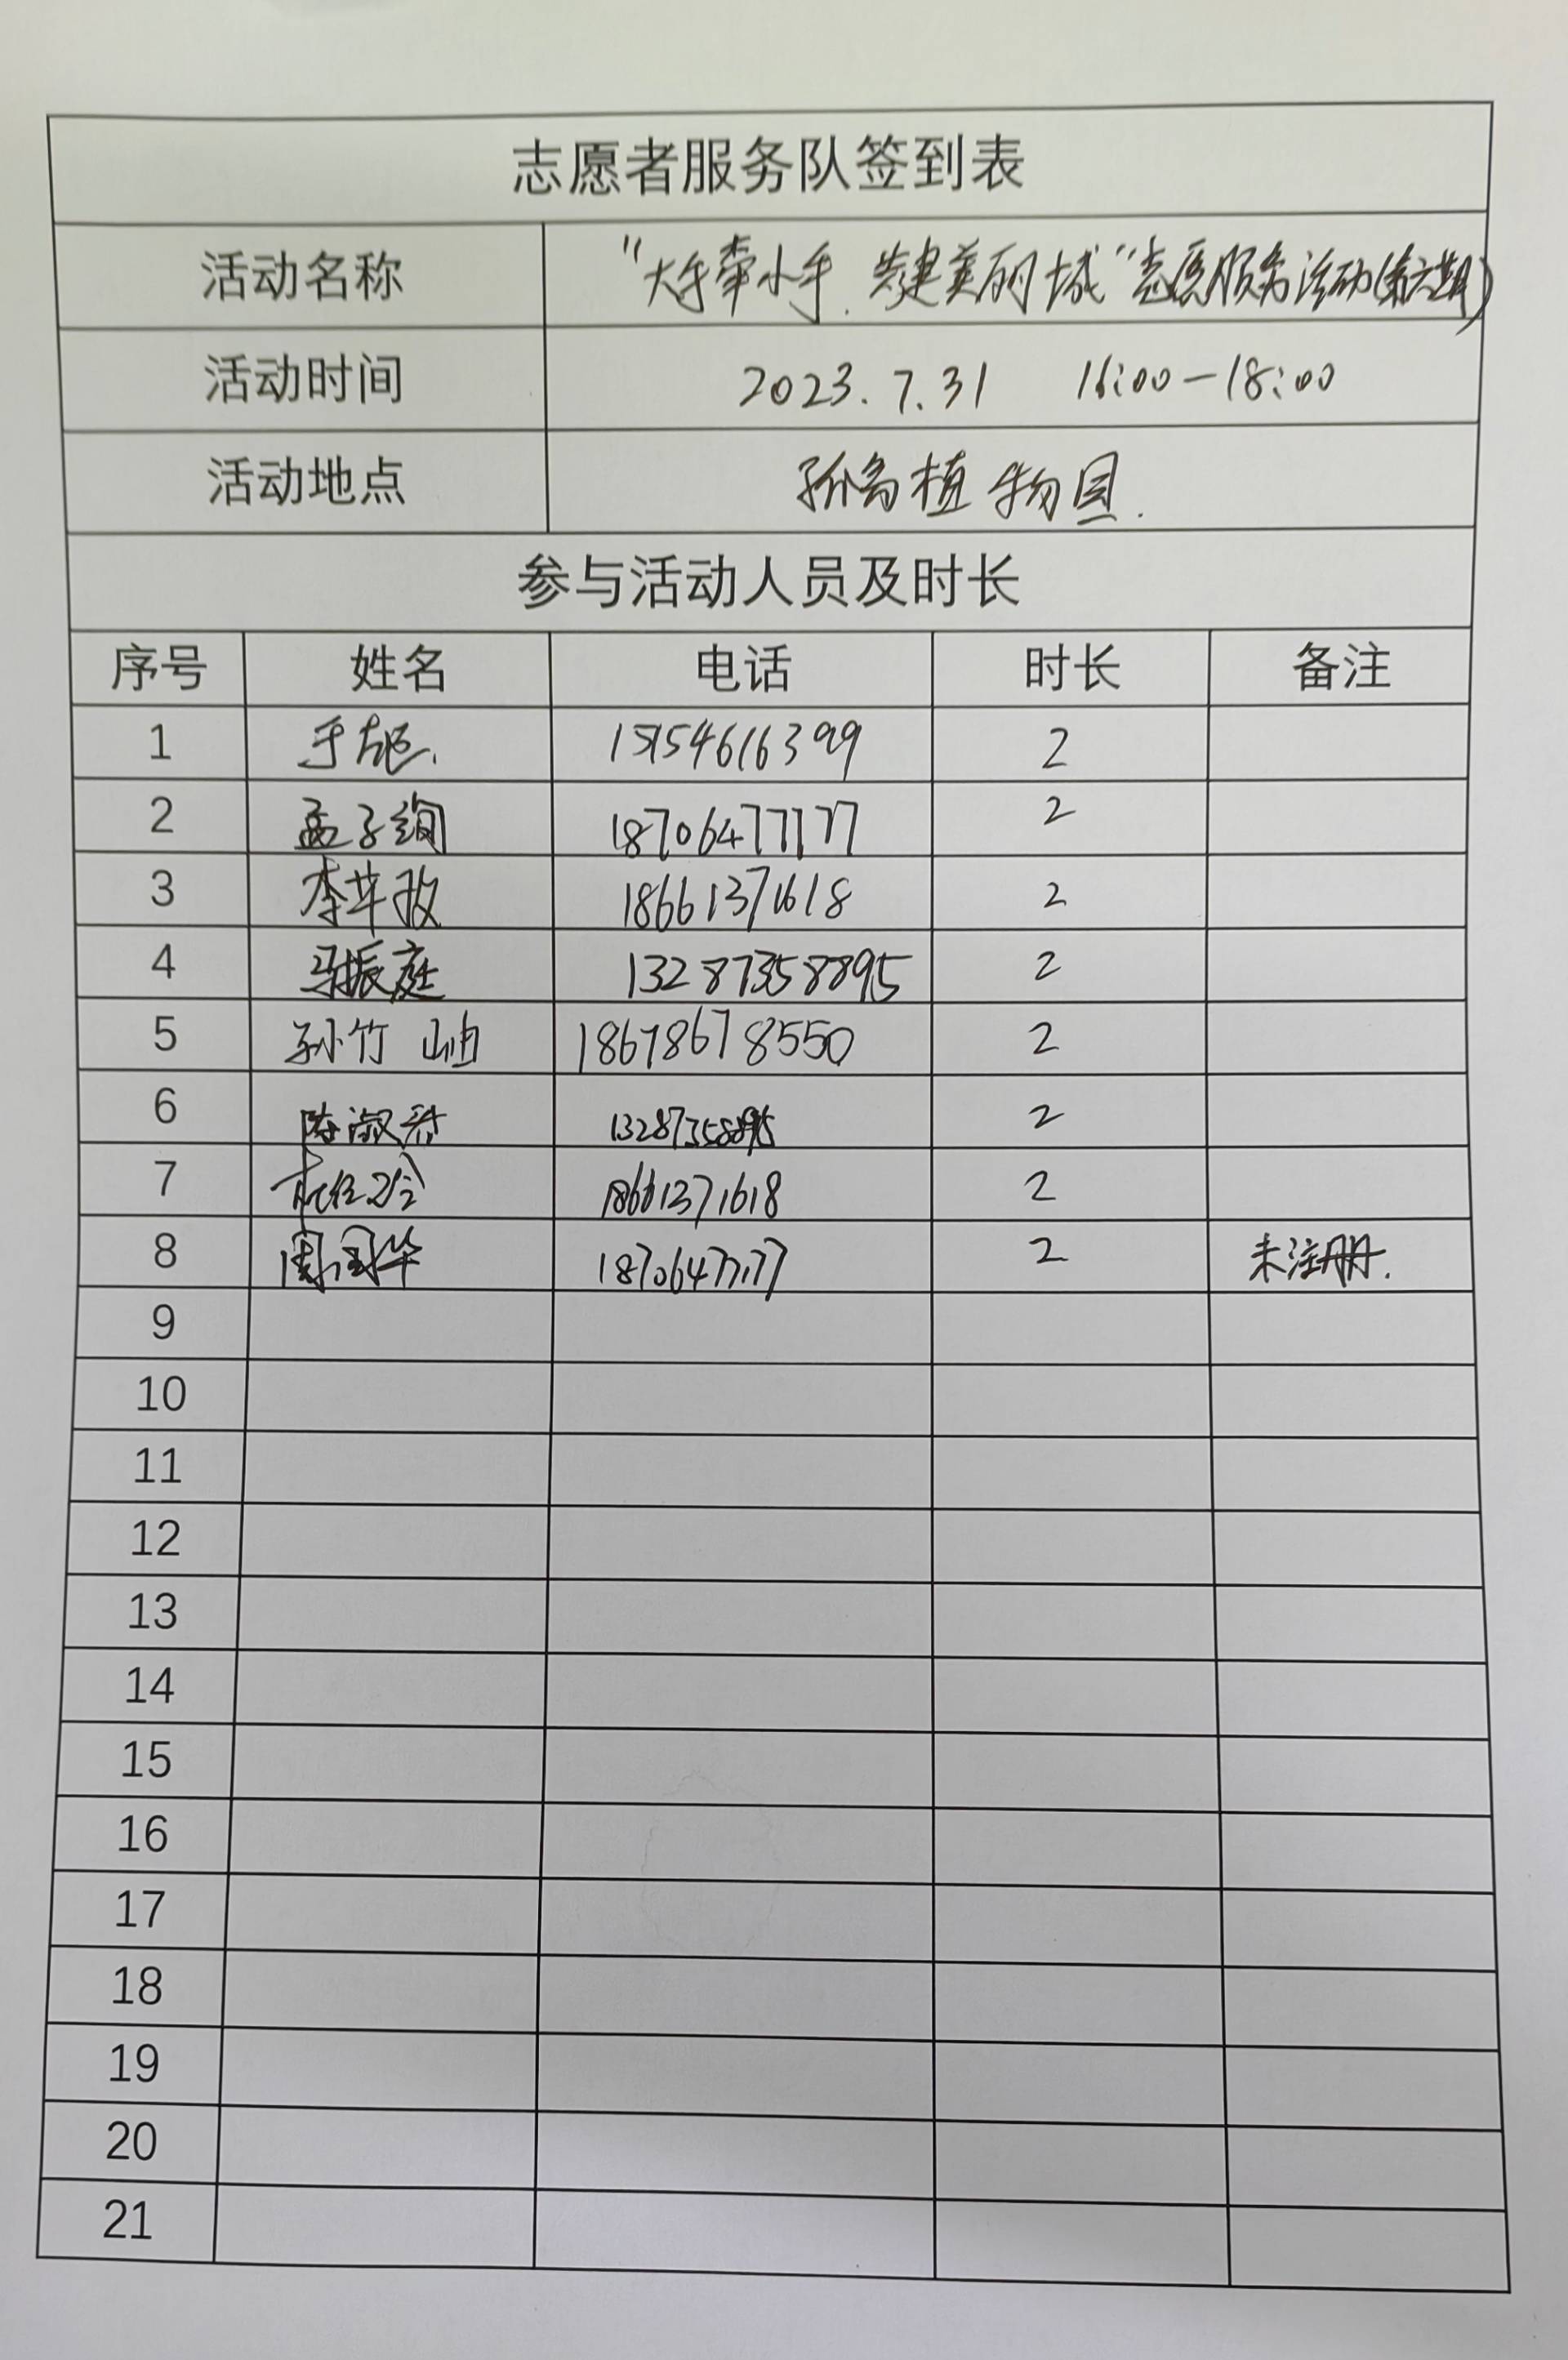 志愿者服务队签到表
活动名称 "大手牵小手.共建美丽城"志愿服务活动(第六期)
活动时间 2023.7.31 16:00-18:00
活动地点 孤岛植物园.
参与活动人员及时长
序号 姓名 电话 时长 备注
1 15154616399 2
2 孟子绚 18706477177 2
3 18661371618 2
4 马振庭 13287358895 2
5 孙竹岫 18678678550 2
6 13287358895 2
7 18661371618 2
8 周国华 18706477177 2 未注册.
9
10
11
12
13
14
15
16
17
18
19
20
21